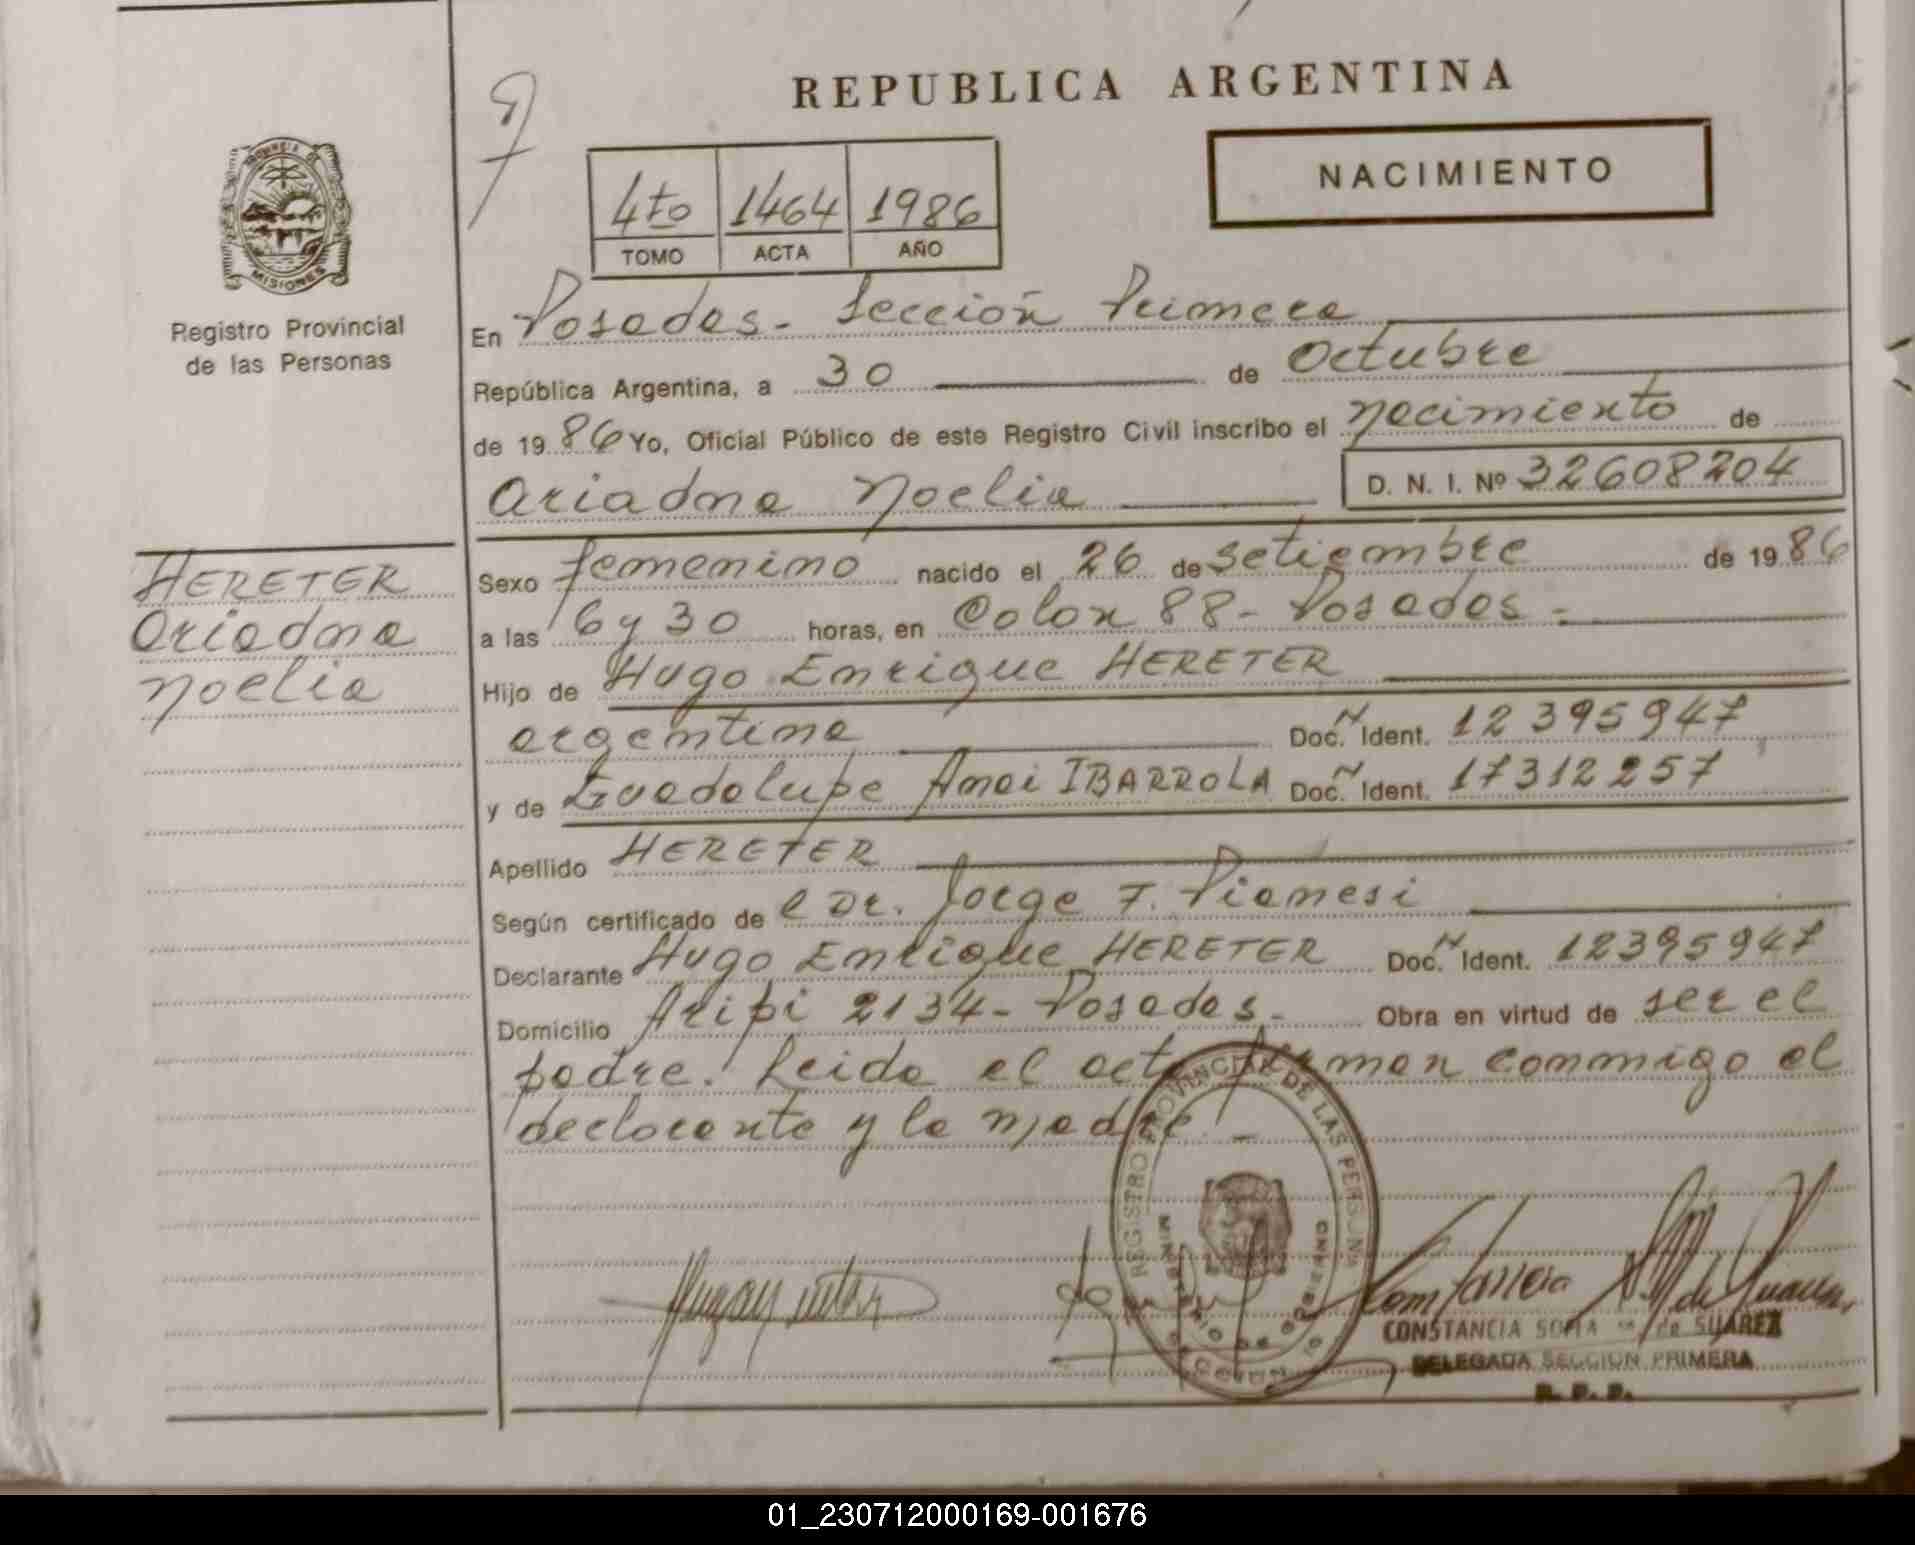 REPUBLICA ARGENTINA
NACIMIENTO
4to 1464 1986
TOMO ACTA AÑO
PROVINCIA DE
MISIONES
Registro Provincial
de las Personas
HERETER
Ariadna
Noelia
En Posadas - Sección Primera
República Argentina, a 30 de Octubre
de 1986 Yo, Oficial Público de este Registro Civil inscribo el nacimiento de
Ariadna Noelia D. N. I. Nº 32608204
Sexo femenino nacido el 26 de setiembre de 1986
a las 16 y 30 horas, en Colon 88 - Posadas -
Hijo de Hugo Enrique HERETER
argentina Doc. N Ident. 12395947
y de Guadalupe Anai IBARROLA Doc. N Ident. 17312257
Apellido HERETER
Según certificado de l Dr. Jorge F. Pianesi
Declarante Hugo Enrique HERETER Doc. N Ident. 12395947
Domicilio Aripi 2134 - Posadas - Obra en virtud de ser el
padre. Leida el acta firman conmigo el
declarante y la madre. -
REGISTRO PROVINCIAL DE LAS PERSONAS
MINISTERIO DE GOBIERNO
CONSTANCIA SOFIA de SUAREZ
DELEGADA SECCION PRIMERA
R. P. P.
01_230712000169-001676